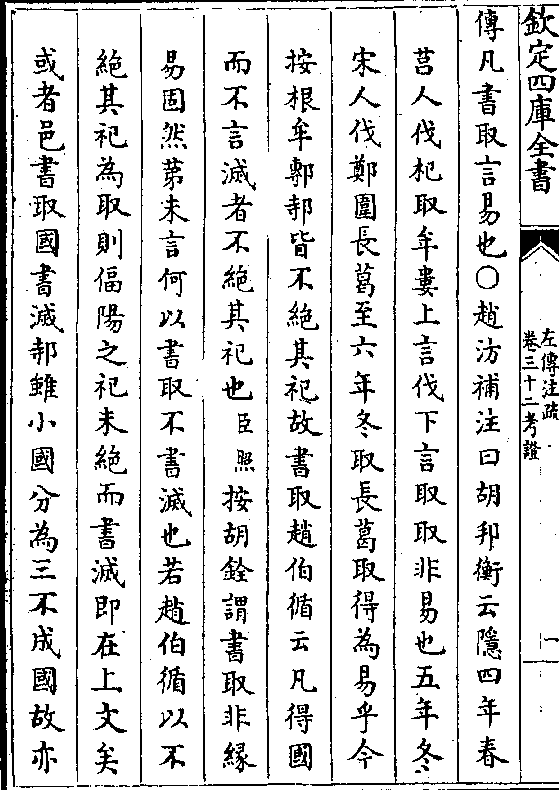 欽定四庫全書
左傳注疏
卷三十二考證
一
傳凡書取言易也〇趙汸補注曰胡邦衡云隱四年春
莒人伐杞取牟婁上言伐下言取取非易也五年冬
宋人伐鄭圍長葛至六年冬取長葛取得為易乎今
按根牟鄟邿皆不絶其祀故書取趙伯循云凡得國
而不言滅者不絶其祀也臣照按胡銓謂書取非緣
易固然第未言何以書取不書滅也若趙伯循以不
絶其祀為取則偪陽之祀未絶而書滅即在上文矣
或者邑書取國書滅邿雖小國分為三不成國故亦